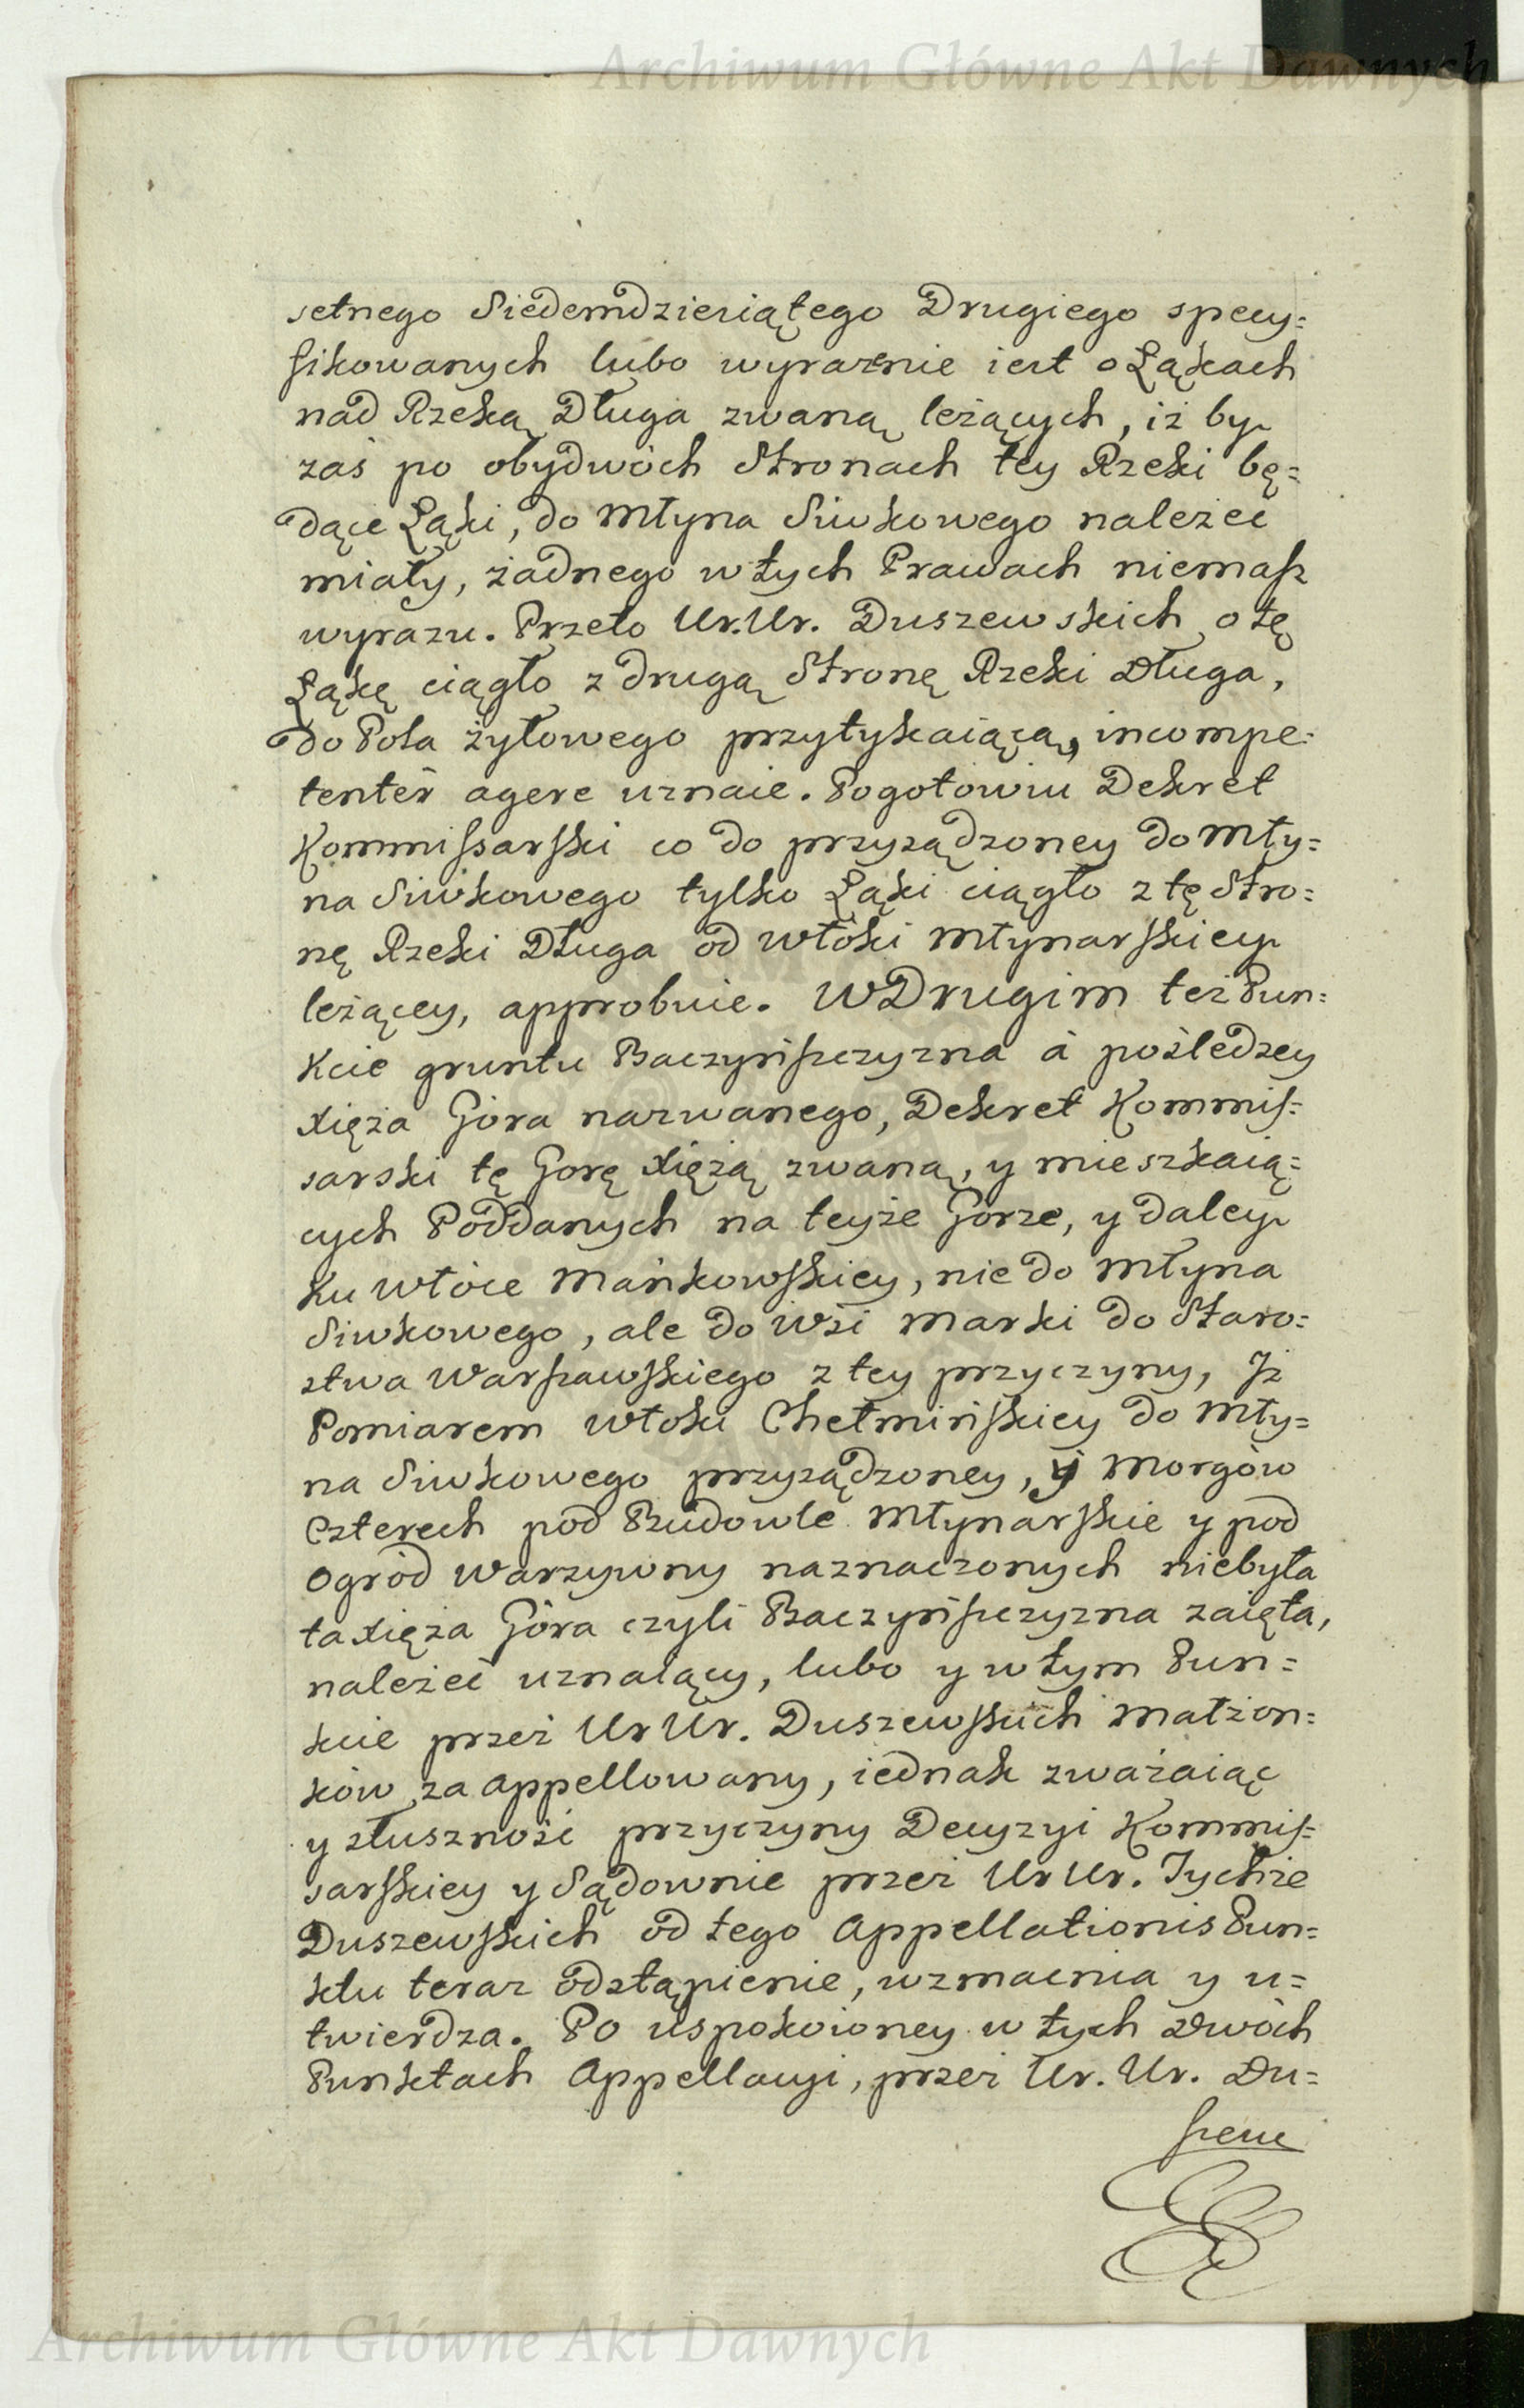 Archiwum Główne Akt Dawnych
setnego Siedemdziesiątego Drugiego specy=
fikowanych lubo wyraznie iest o Łąkach
nad Rzeką Długa zwaną leżących, iż by
zaś po obydwóch Stronach tey Rzeki bę=
dące Łąki, do Młyna Siwkowego należeć
miały, żadnego w tych Prawach niemasz
wyrazu. Przeto Ur. Ur. Duszewskich o tę
Łąkę ciągło z drugą Stronę Rzeki Długa,
do Pola żytowego przytykaiącą, incompe=
tentèr agere uznaie. Pogotowiu Dekret
Kommissarski co do przysądzoney do Mły=
na Siwkowego tylko Łąki ciągło z tę Stro=
nę Rzeki Długa od Włóki Młynarskiey
leżącey, approbuie. W Drugim też Pun=
kcie gruntu Baczyńszczyzna á poślédzey
Xięża Góra nazwanego, Dekret Kommis=
sarski tę Gorę Xiężą zwaną, y mieszkaią=
cych Poddanych na teyże Górze, y daley
ku Włóce Mańkowskiey, nie do Młyna
Siwkowego, ale do Wsi Marki do Staro=
stwa Warszawskiego z tey przyczyny, Jż
Pomiarem Włoki Chełmińskiey do Mły=
na Siwkowego przysądzoney, y Morgów
Czterech pod Budowle Młynarskie y pod
Ogród Warzywny naznaczonych niebyła
ta Xięża Góra czyli Baczyńszczyzna zaięta,
należeć uznaiący, lubo y w tym Pun=
kcie przez Ur Ur. Duszewskich Małżon=
ków za appellowany, iednak zważaiąc
y słuszność przyczyny Decyzyi Kommis=
sarskiey y Sądownie przez Ur Ur. Tychże
Duszewskich od tego Appellationis Pun=
ktu teraz odstąpienie, wzmacnia y u=
twierdza. Po uspokoioney w tych dwóch
Punktach Appellacyi, przez Ur. Ur. Du=
szew
Archiwum Główne Akt Dawnych